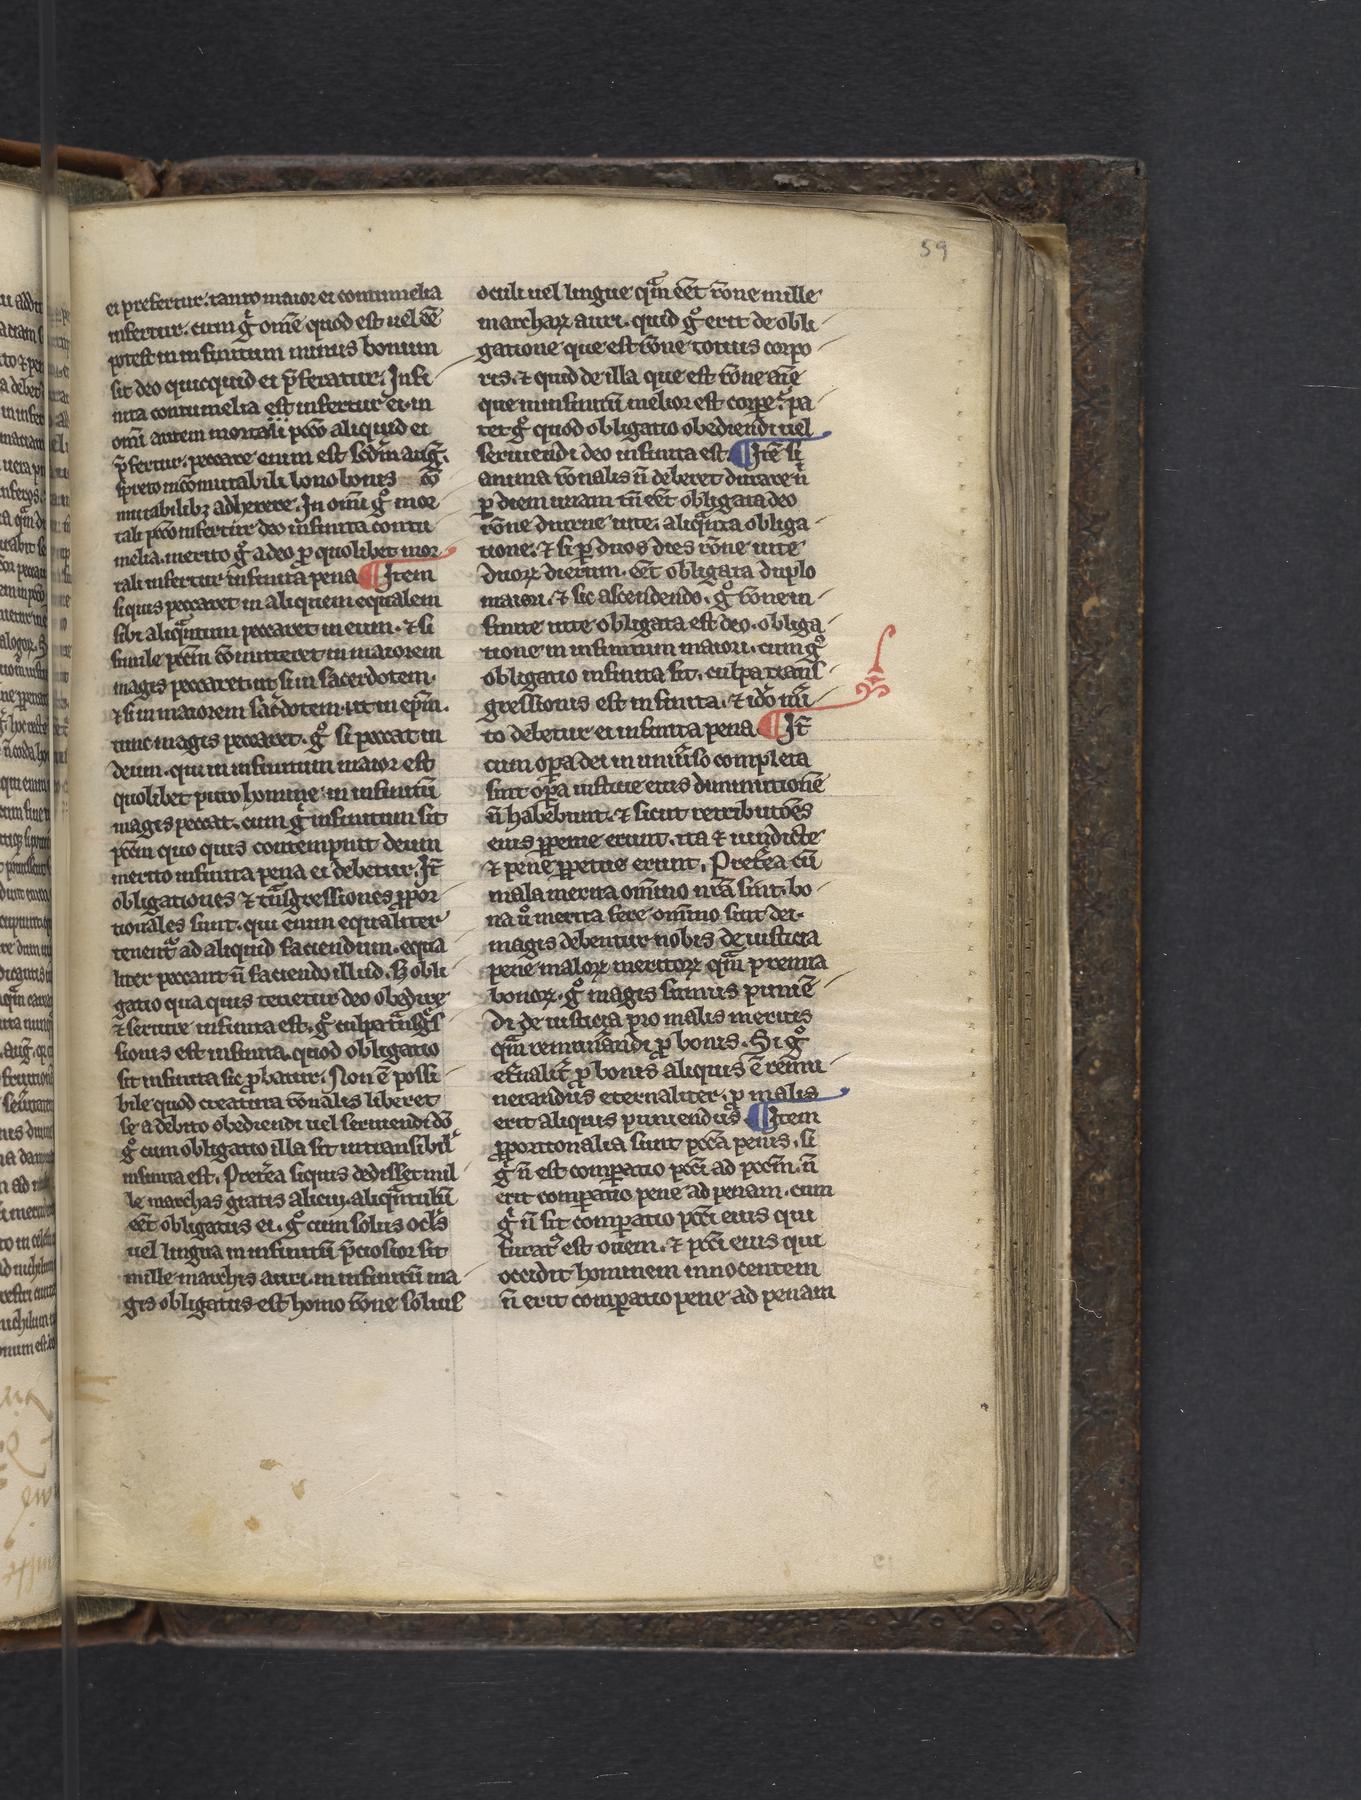 59
ei prefertur. tanto maior ei contumelia
infertur. cum gͣ om̄e quod est uel ee᷒
potest in infinitum minus bonum
sit deo quicquid ei p̄feratur. Infi
nita contumelia est infertur ei. in
omi autem mortali pccō aliquid ei
p̄fertur. peccare enim est scdm aug.
spreto incōmutabili bono bonis cō
mutabilibꝫ adherere. In omi gͦ mor
tali pccō infertur deo infinita contu
melia. merito gͦ a deo ꝓ quolibet mor
tali infertur infinita pena ¶ Item
si quis peccaret in aliquem equalem
sibi aliqͣntum peccaret in eum. ⁊ si
simile pccm cōmitteret in maiorem
magis peccaret. ut si in sacerdotem.
⁊ si in maiorem sacͬdotem. ut in ep̄m.
tunc magis peccaret. gͦ si peccat in
deum. qui in infinitum maior est
quolibet puro homine. in infinitū
magis peccat. cum gͦ infinitum sit
pccm quo quis contempnit deum
merito infinita pena ei debetur. It̄
obligationes ⁊ tͣnsgressiones ꝓpor
tionales sunt. qui enim equaliter
tenentͬ ad aliquid faciendum. equa
liter peccant n̄ faciendo illud. S obli
gatio qua quis tenetur deo obedire
⁊ seruire infinita est. gͦ culpa tͣnsgͤs
sionis est infinita. quod obligatio
sit infinita sic ꝓbatur. Non ē possi
bile quod creatura rōnalis liberet
se a debito obediendi uel seruiendi dō
gͦ cum obligatio illa sit intransibil'
infinita est. Pret̾ea si quis dedisset mil
le marchas gratis alicui. aliqͣntulū
eēt obligatus ei. gͦ cum solus ocl's
uel lingua in infinitū p̄ciosior sit
mille marchis auri. in infinitū ma
gis obligatus est homo rōne solius
oculi uel lingue qͣm eēt rōne mille
marchaꝝ auri. quid gͦ erit de obli
gatione que est rōne totius corpo
ris. ⁊ quid de illa que est rōne aīe
que in infinitū melior est corpe. pa
tet gͦ quod obligatio obediendi uel
seruiendi deo infinita est. ¶ Itē si
anima rōnalis n̄ deberet durare ń
ꝑ diem unam tn̄ eēt obligata deo
rōne diurne uite. aliqͣnta obliga
tione. ⁊ si ꝑ duos dies rōne uite
duoꝝ dierum. eēt obligata duplo
maiori. ⁊ sic ascendendo. gͦ rōne in
finite uite obligata est deo. obliga
tione in infinitum maiori. cum gͦ
obligatio infinita sit. culpa trans
gressionis est infinita. ⁊ idō m̾i
to debetur ei infinita pena ¶ It̄
cum oꝑa dei in uniu̾so completa
sint oꝑa iusticie eius diminutionē
n̄ habebunt. ⁊ sicut retributōes
eius ꝑpetue erunt. ita ⁊ uindicte
⁊ pene ꝑpetue erunt. Pret̾ea cū
mala merita om̄ino nr̄a sint. bo
na u̾ merita fere om̄ino sint dei.
magis debentur nobis de iusticia
pene maloꝝ meritoꝝ qͣm premia
bonoꝝ. gͦ magis sumus puniē
di de iusticia pro malis meritis
qͣm remun̾andi ꝓ bonis. Si gͦ
et̾nalit̾ ꝓ bonis aliquis ē remu
nerandus eternaliter. ꝓ malis
erit aliquis puniendus. ¶ Item
ꝓportionalia sunt pccā penis. si
gͦ n̄ est comparatio pccī ad pccm̄. n̄
erit comꝑatio pene ad penam. cum
gͦ n̄ sit comꝑatio pccī eius qui
furatꝰ est ouem. ⁊ pccī eius qui
occidit hominem innocentem
n̄ erit comꝑatio pene ad penam